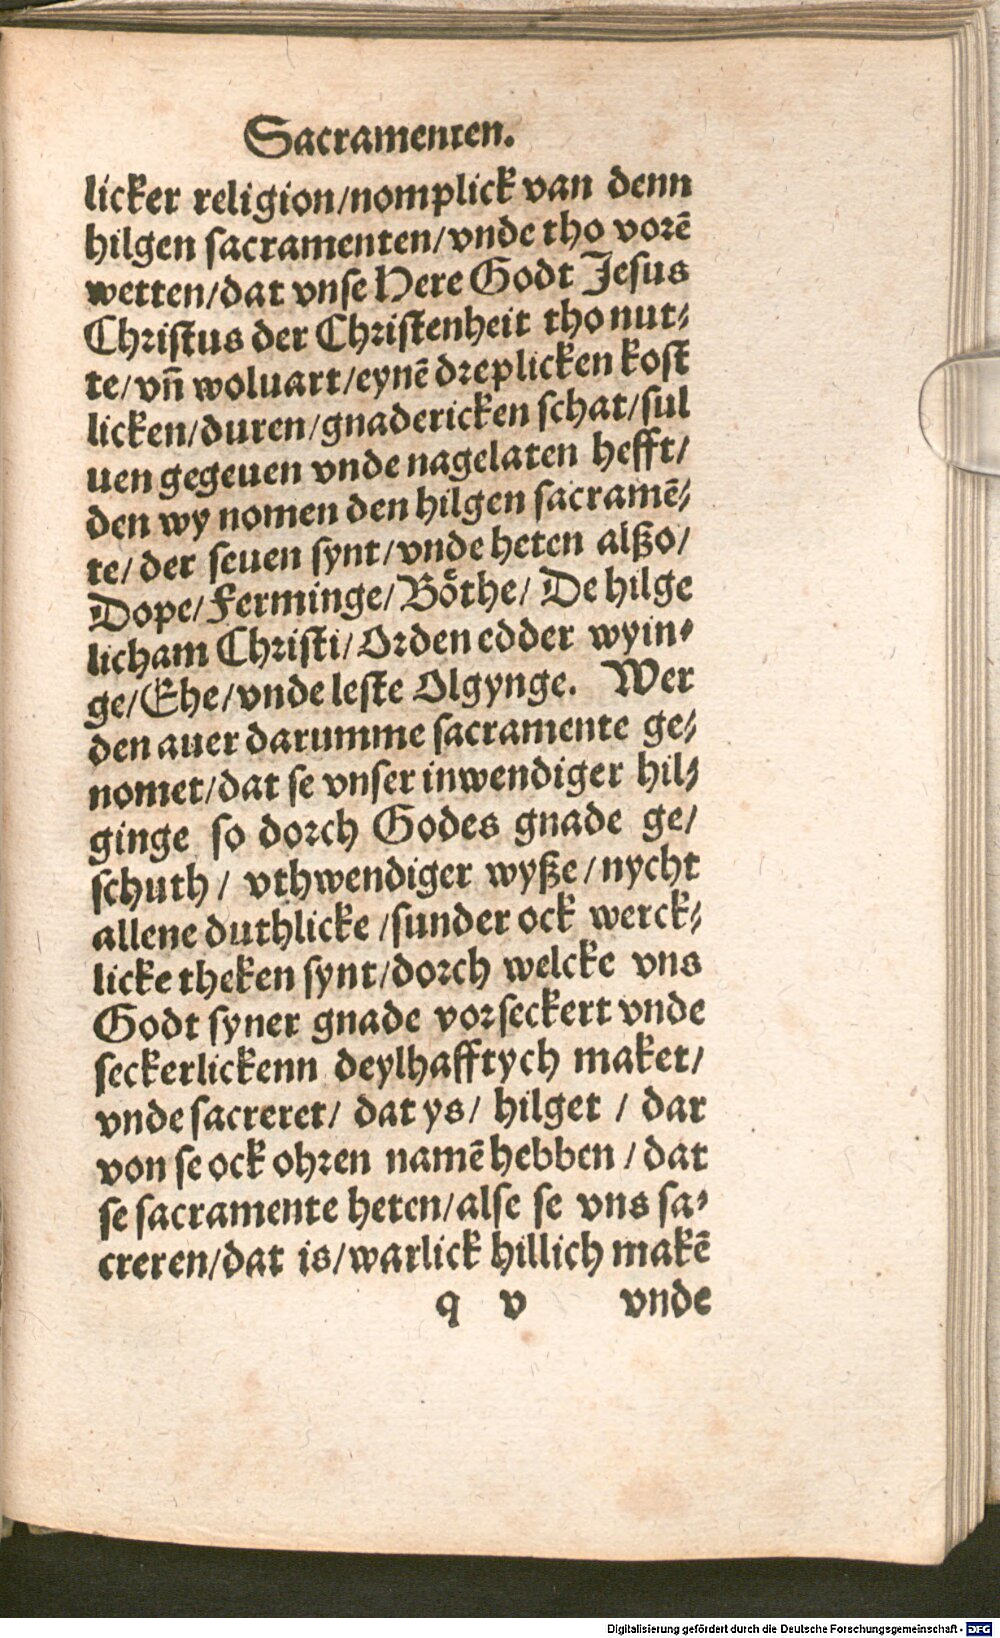 Sacramenten.
licker religion/nomplick van denn
hilgen sacramenten/vnde tho vorē
wetten/dat vnse Here Godt Jesus
Christus der Christenheit tho nut⸗
te/vñ woluart/eynē dreplicken kost
licken/duren/gnadericken schat/sul
uen gegeuen vnde nagelaten hefft/
den wy nomen den hilgen sacramē⸗
te/der seuen synt/vnde heten alßo/
Dope/Ferminge/Boͤthe/De hilge
licham Christi/Orden edder wyin⸗
ge/Ehe/vnde leste Olgynge. Wer
den auer darumme sacramente ge⸗
nomet/dat se vnser inwendiger hil⸗
ginge so dorch Godes gnade ge/
schuth/ vthwendiger wyße/nycht
allene duthlicke/sunder ock werck⸗
licke theken synt/dorch welcke vns
Godt syner gnade vorseckert vnde
seckerlickenn deylhafftych maket/
vnde sacreret/ dat ys/ hilget / dar
von se ock ohren namē hebben/dat
se sacramente heten/alse se vns sa⸗
creren/dat is/warlick hillich makē
q v vnde
Digitalisierung gefördert durch die Deutsche Forschungsgemeinschaft - DFG